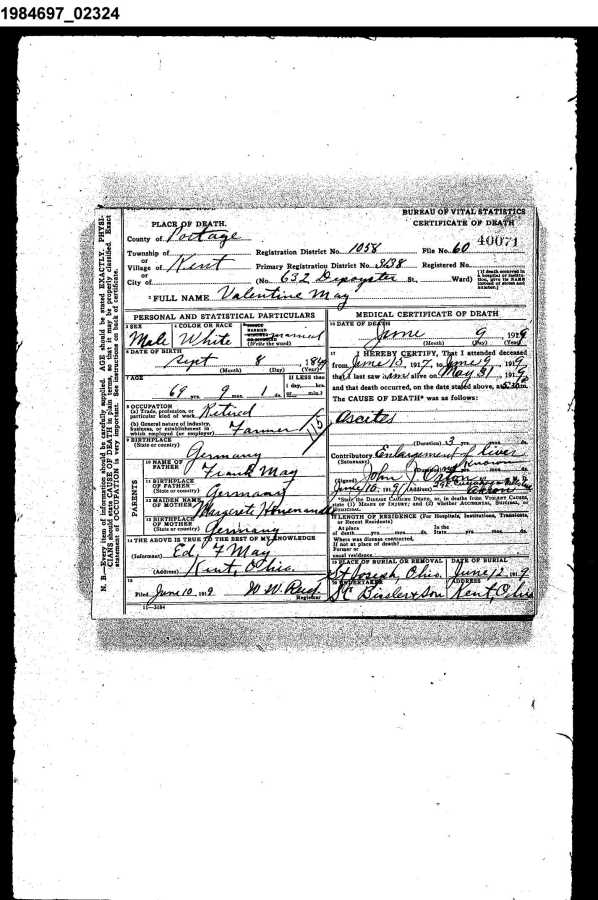 1984697_02324
BUREAU OF VITAL STATISTICS
CERTIFICATE OF DEATH
PLACE OF DEATH.
County of Portage
Township of
or
Village of Kent
or
City of
Registration District No. 1058 File No. 60 40071
Primary Registration District No. 3238 Registered No.
(No. 632 Depeyster St., Ward)
2 FULL NAME Valentine May
PERSONAL AND STATISTICAL PARTICULARS
3 SEX
Male
4 COLOR OR RACE
White
married
(Write the word)
6 DATE OF BIRTH
Sept 8
(Month) (Day) (Year)
7 AGE
69 yrs. 9 mos. 1 ds.
If LESS than
1 day, hrs.
or min.?
8 OCCUPATION
(a) Trade, profession, or
particular kind of work Retired
(b) General nature of industry,
business, or establishment in
which employed (or employer) Farmer
9 BIRTHPLACE
(State or country)
Germany
PARENTS
10 NAME OF
FATHER Frank May
11 BIRTHPLACE
OF FATHER
(State or country) Germany
12 MAIDEN NAME
OF MOTHER
13 BIRTHPLACE
OF MOTHER
(State or country) Germany
14 THE ABOVE IS TRUE TO THE BEST OF MY KNOWLEDGE
(Informant) Ed. F May
(Address) Kent, Ohio.
15
Filed June 10, 1919 W.W. Reed
Registrar
11—3184
MEDICAL CERTIFICATE OF DEATH
16 DATE OF DEATH
June 9, 1919
(Month) (Day) (Year)
17 I HEREBY CERTIFY, That I attended deceased
from June 13, 1917, to June 9, 1919
that I last saw him alive on May 31, 191
and that death occurred, on the date stated above, at m.
The CAUSE OF DEATH* was as follows:
Ascites
(Duration) 3 yrs. mos. ds.
Contributory Enlargement of liver
(Secondary)
(Duration) not known
(Signed) John J.
June 10, 191 (Address) Akron
*State the DISEASE CAUSING DEATH, or, in deaths from VIOLENT CAUSES,
state (1) MEANS OF INJURY; and (2) whether ACCIDENTAL, SUICIDAL, or
HOMICIDAL.
18 LENGTH OF RESIDENCE (For Hospitals, Institutions, Transients,
or Recent Residents)
At place In the
of death yrs. mos. ds. State yrs. mos. ds.
Where was disease contracted,
If not at place of death?
Former or
usual residence
19 PLACE OF BURIAL OR REMOVAL DATE OF BURIAL
St Joseph, Ohio. June 12, 1919
20 UNDERTAKER ADDRESS
S.C. Bissler & Son Kent, Ohio
N. B.—Every item of information should be carefully supplied. AGE should be stated EXACTLY. PHYSI-
CIANS should state CAUSE OF DEATH in plain terms, so that it may be properly classified. Exact
statement of OCCUPATION is very important. See instructions on back of certificate.